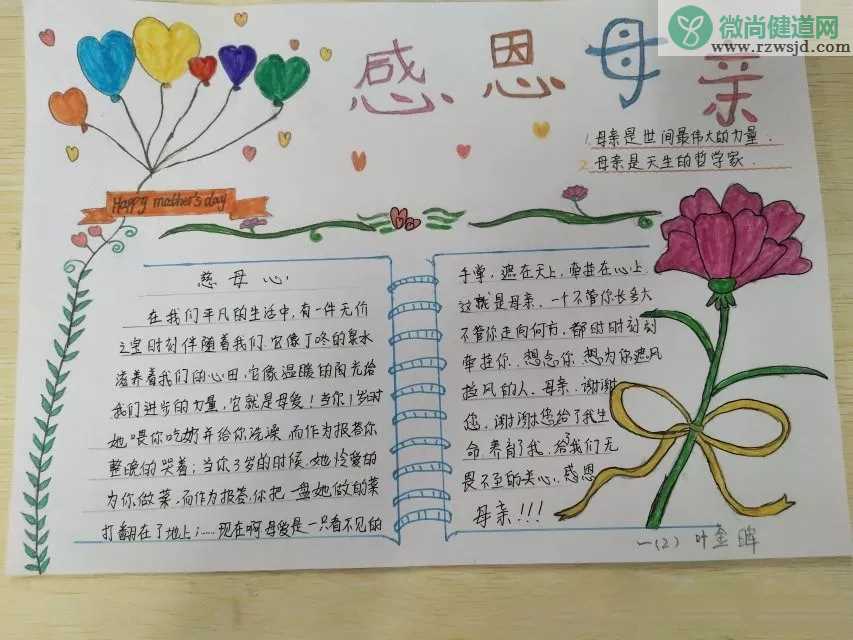 微尚健道网
www.rzwsjd.com
感恩母亲
1.母亲是世间最伟大的力量.
2.母亲是天生的哲学家.
Happy mother's day
慈母心
在我们平凡的生活中,有一件无价
之宝时刻伴随着我们.它像丁咚的泉水
滋养着我们的心田,它像温暖的阳光给
我们进步的力量,它就是母爱!当你1岁时
她喂你吃奶并给你洗澡,而作为报答你
整晚的哭着;当你3岁的时候,她怜爱的
为你做菜,而作为报答,你把一盘她做的菜
打翻在了地上;……现在啊母爱是一只看不见的
手掌,遮在天上,牵挂在心上
这就是母亲,一个不管你长多大
不管你走向何方,都时时刻刻
牵挂你、想念你、想为你遮风
挡风的人,母亲,谢谢
您,谢谢您给了我生
命,养育了我,给了我们无
畏不至的关心,感恩
母亲!!!
一(2) 叶金晖